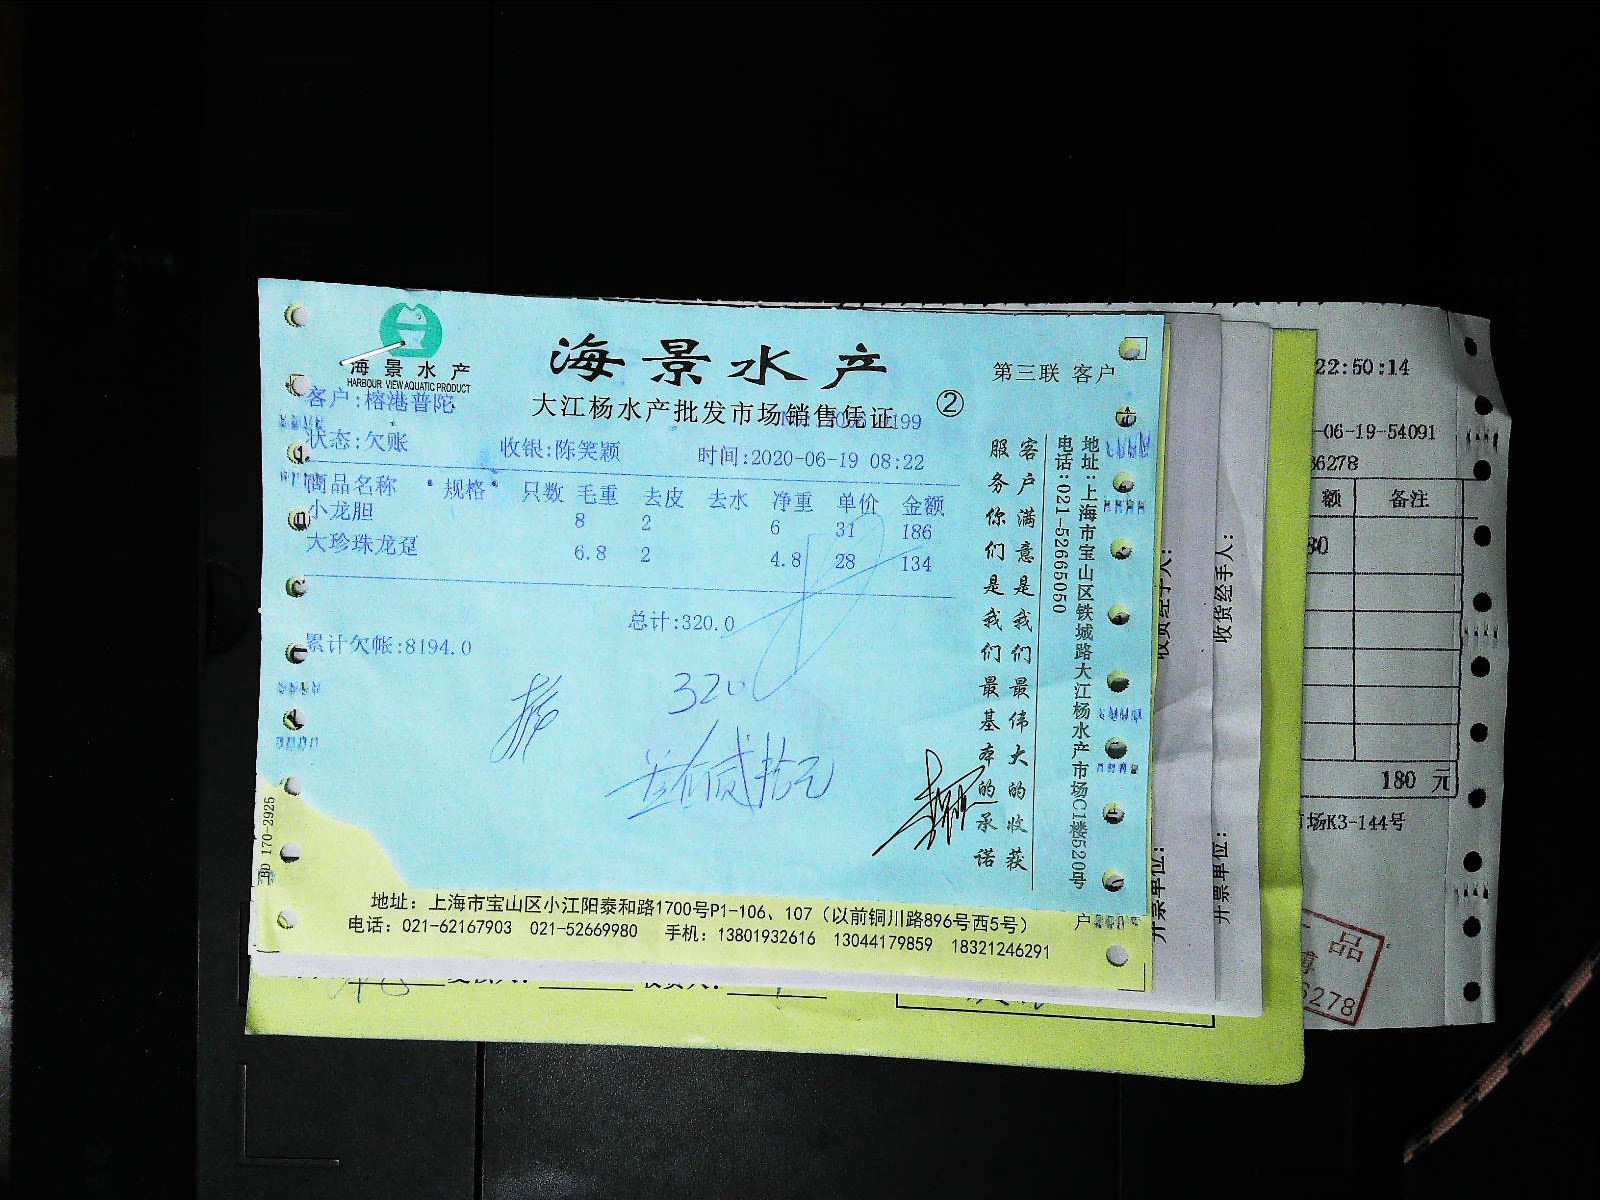 海景水产
HARBOUR VIEW AQUATIC PRODUCT
海景水产
大江杨水产批发市场销售凭证
②
第三联 客户
客户:榕港普陀
状态:欠账 收银:陈笑颖 时间:2020-06-19 08:22
商品名称 规格 只数 毛重 去皮 去水 净重 单价 金额
小龙胆 8 2 6 31 186
大珍珠龙趸 6.8 2 4.8 28 134
总计:320.0
累计欠帐:8194.0
320
叁佰贰拾元
客户满意是我们最伟大的收获
服务你们是我们最基本的承诺
地址:上海市宝山区铁城路大江杨水产市场C1楼520号
电话:021-52665050
170-2925
地址：上海市宝山区小江阳泰和路1700号P1-106、107（以前铜川路896号西5号）
电话：021-62167903 021-52669980 手机：13801932616 13044179859 18321246291
户
收货经手人:
开票单位:
收货经手人:
开票单位:
22:50:14
-06-19-54091
36278
额 备注
80
180 元
市场K3-144号
品
博
6278